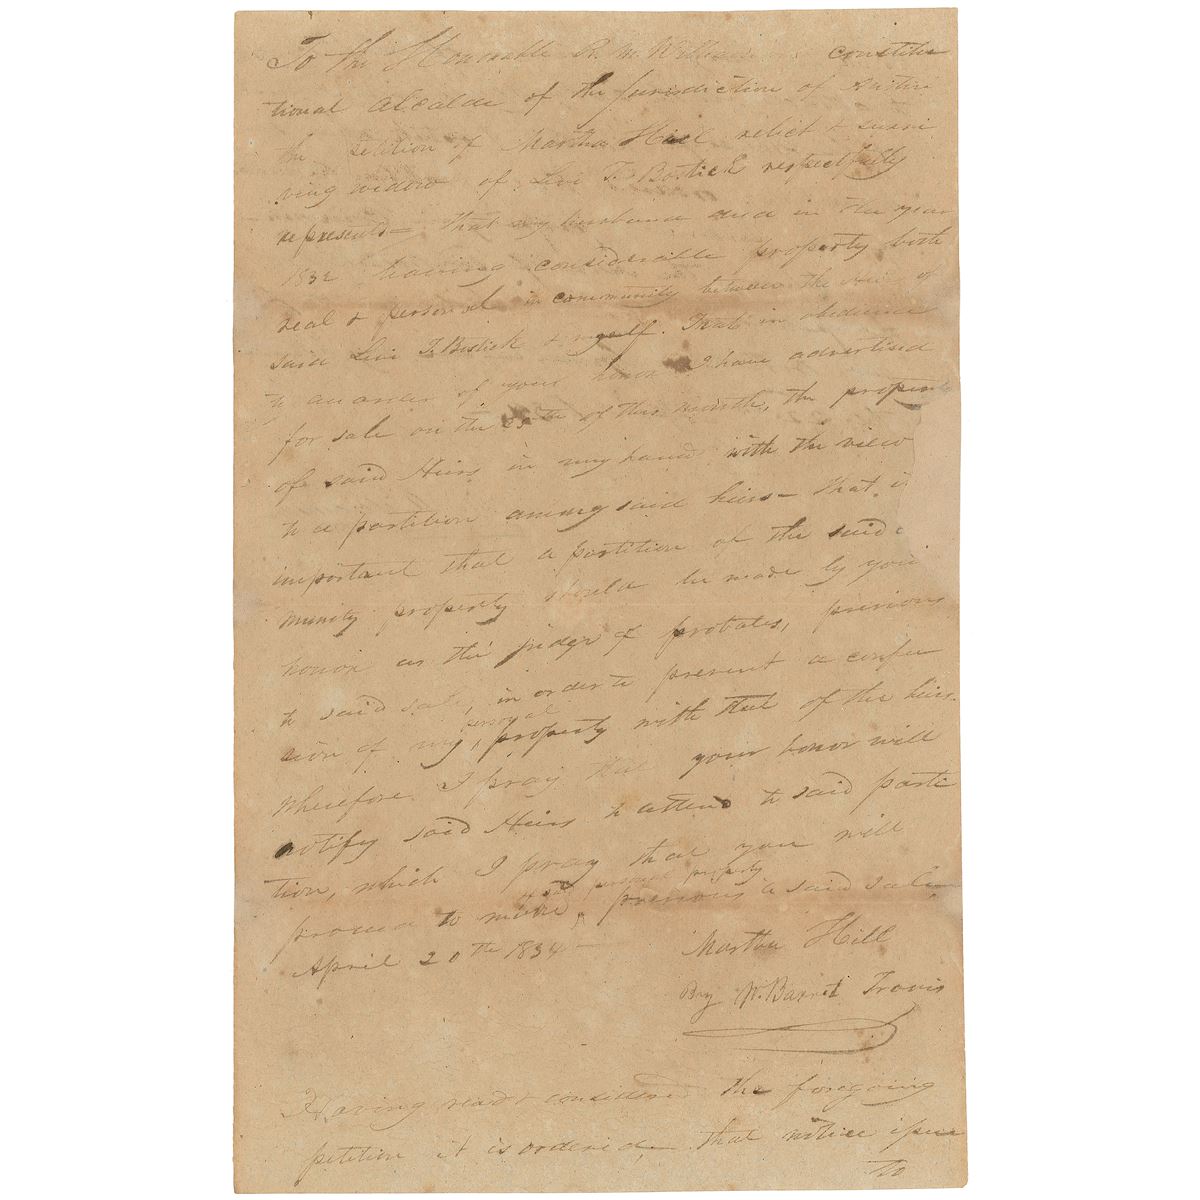 To the Honorable R. M. Williamson constitu
tional Alcalde of the Jurisdiction of Austin
the petition of Martha Hill relict & survi
ving widow of Levi T. Bostick respectfully
represents— that my husband died in the year
1832 leaving considerable property both
real & personal in community between the Heirs of
said Levi T. Bostick & myself. That in obedience
to an order of your honor I have advertised
for sale on the 25th of this month, the property
of said Heirs in my hand with the view
to a partition among said heirs— that i
important that a partition of the said c
munity property should be made by your
honor as the judge of probates, previous
to said sale, in order to prevent a confu
sion of my personal property with that of the heirs.
Wherefore I pray that your honor will
notify said Heirs to attend to said parti
tion, which I pray that you will
personal property
proceed to make, previous to said sale,
April 20th 1834 —
Martha Hill
By W. Barret Travis
Having read & considered the foregoing
petition it is ordered, that notice issue
to